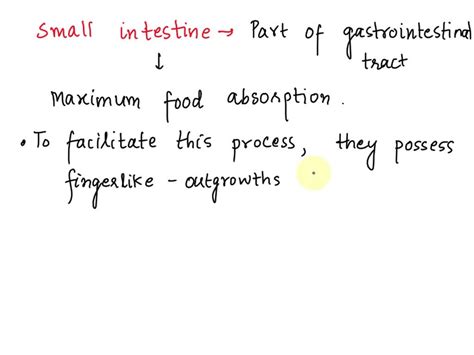 Small intestine → Part of gastrointestinal
tract
↓
Maximum food absorption.
• To facilitate this process, they possess
fingerlike - outgrowths